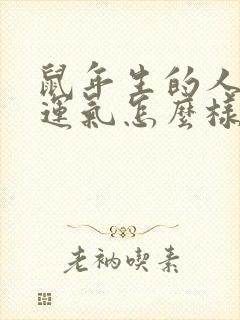 鼠年生的人
運氣怎麼樣
老衲喫素